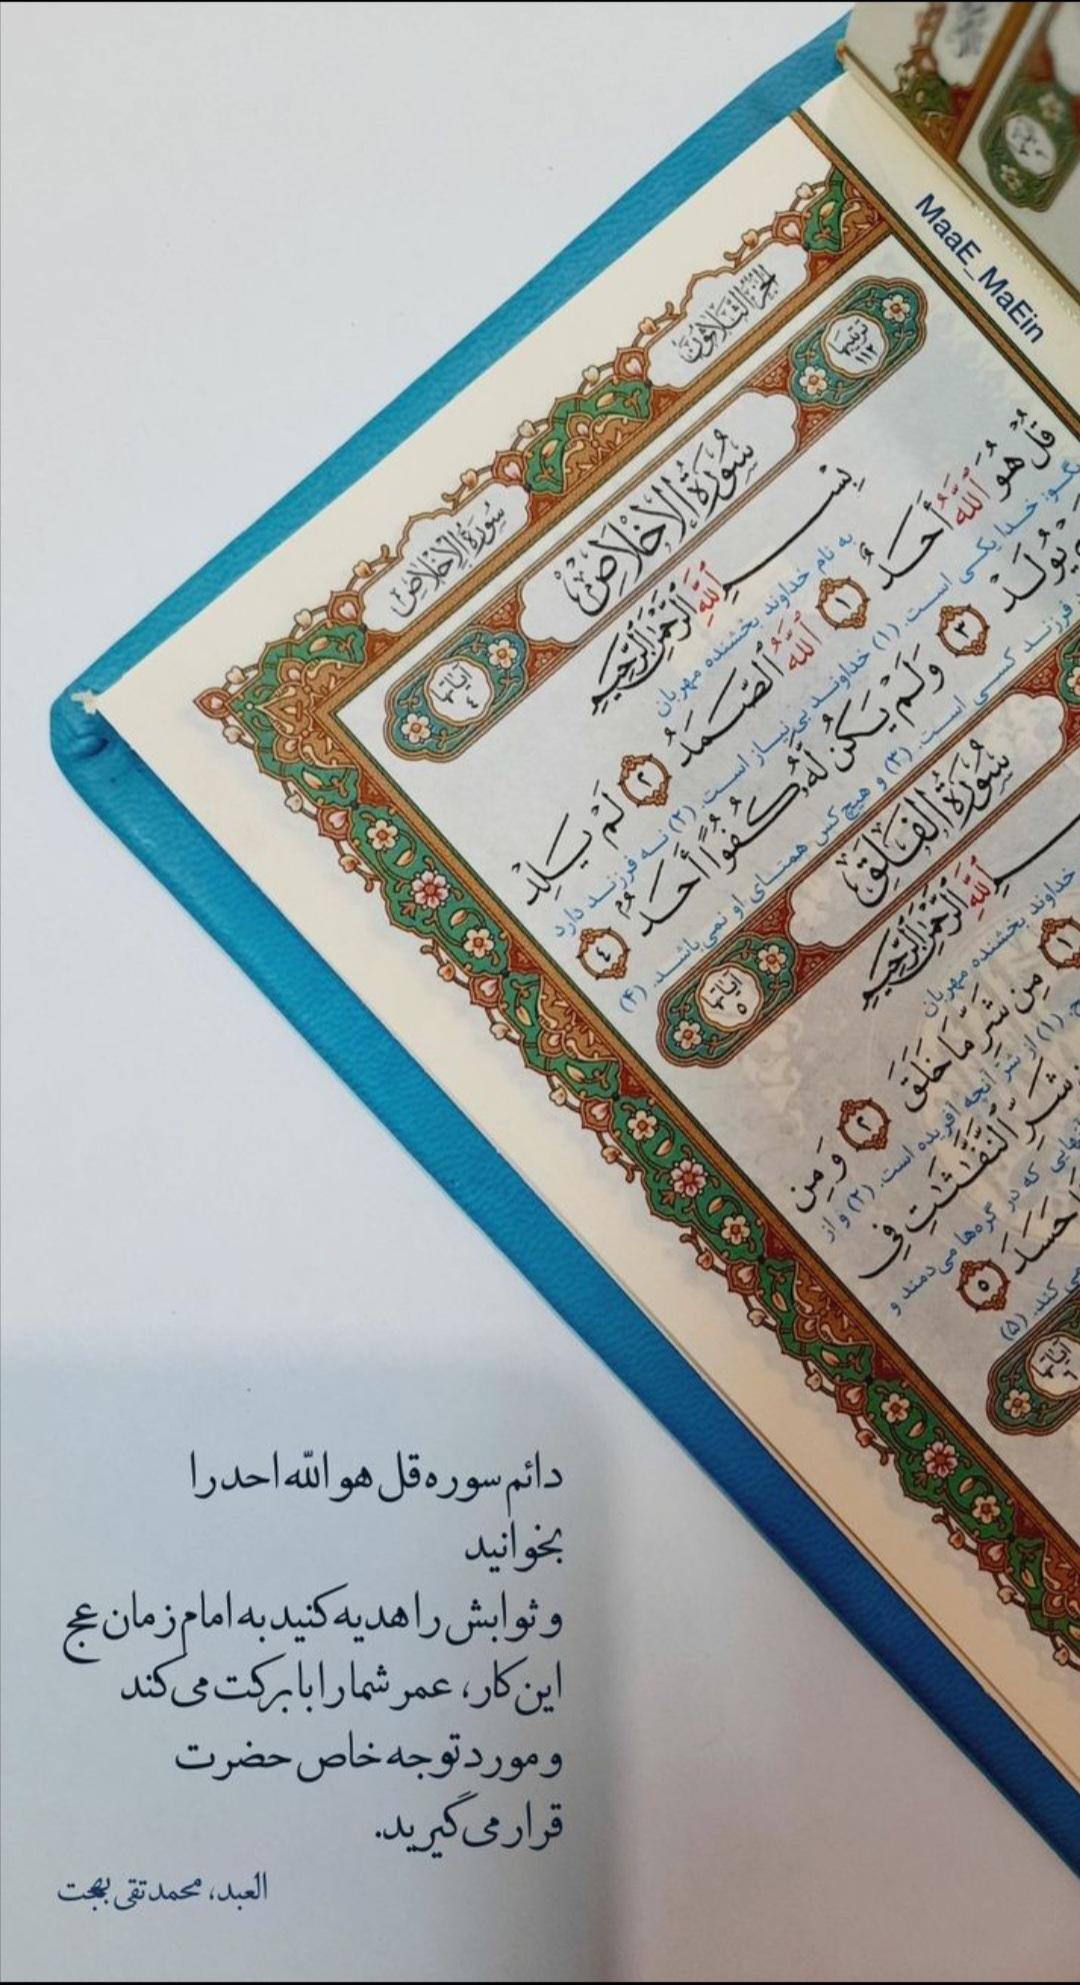 MaaE_MaEin
الجزء الثلاثون
سورة الإخلاص
ترتيبها ١١٢
سُورَةُ الإِخْلَاصِ
آياتها ٤
بِسْمِ ٱللَّهِ ٱلرَّحْمَٰنِ ٱلرَّحِيمِ
به نام خداوند بخشنده مهربان
قُلْ هُوَ ٱللَّهُ أَحَدٌ ١ ٱللَّهُ ٱلصَّمَدُ ٢ لَمْ يَلِدْ
بگو: خدا یکی است. (۱) خداوند بی‌نیاز است. (۲) نه فرزند دارد
يُولَدْ ٣ وَلَمْ يَكُن لَّهُ كُفُوًا أَحَدٌ ٤
فرزند کسی است. (۳) و هیچ کس همتای او نمی‌باشد. (۴)
سُورَةُ الْفَلَقِ
آياتها ٥
ٱللَّهِ ٱلرَّحْمَٰنِ ٱلرَّحِيمِ
خداوند بخشنده مهربان
١ مِن شَرِّ مَا خَلَقَ ٢ وَمِن
(۱) از شر آنچه آفریده است. (۲) و از
شَرِّ ٱلنَّفَّٰثَٰتِ فِي
که در گره‌ها می‌دمند و
حَسَدَ ٥
کند. (۵)
آياتها ٦
دائم سوره قل هو الله احد را
بخوانید
و ثوابش را هدیه کنید به امام زمان عج
این کار، عمر شما را با برکت می‌کند
و مورد توجه خاص حضرت
قرار می‌گیرید.
العبد، محمد تقی بهجت